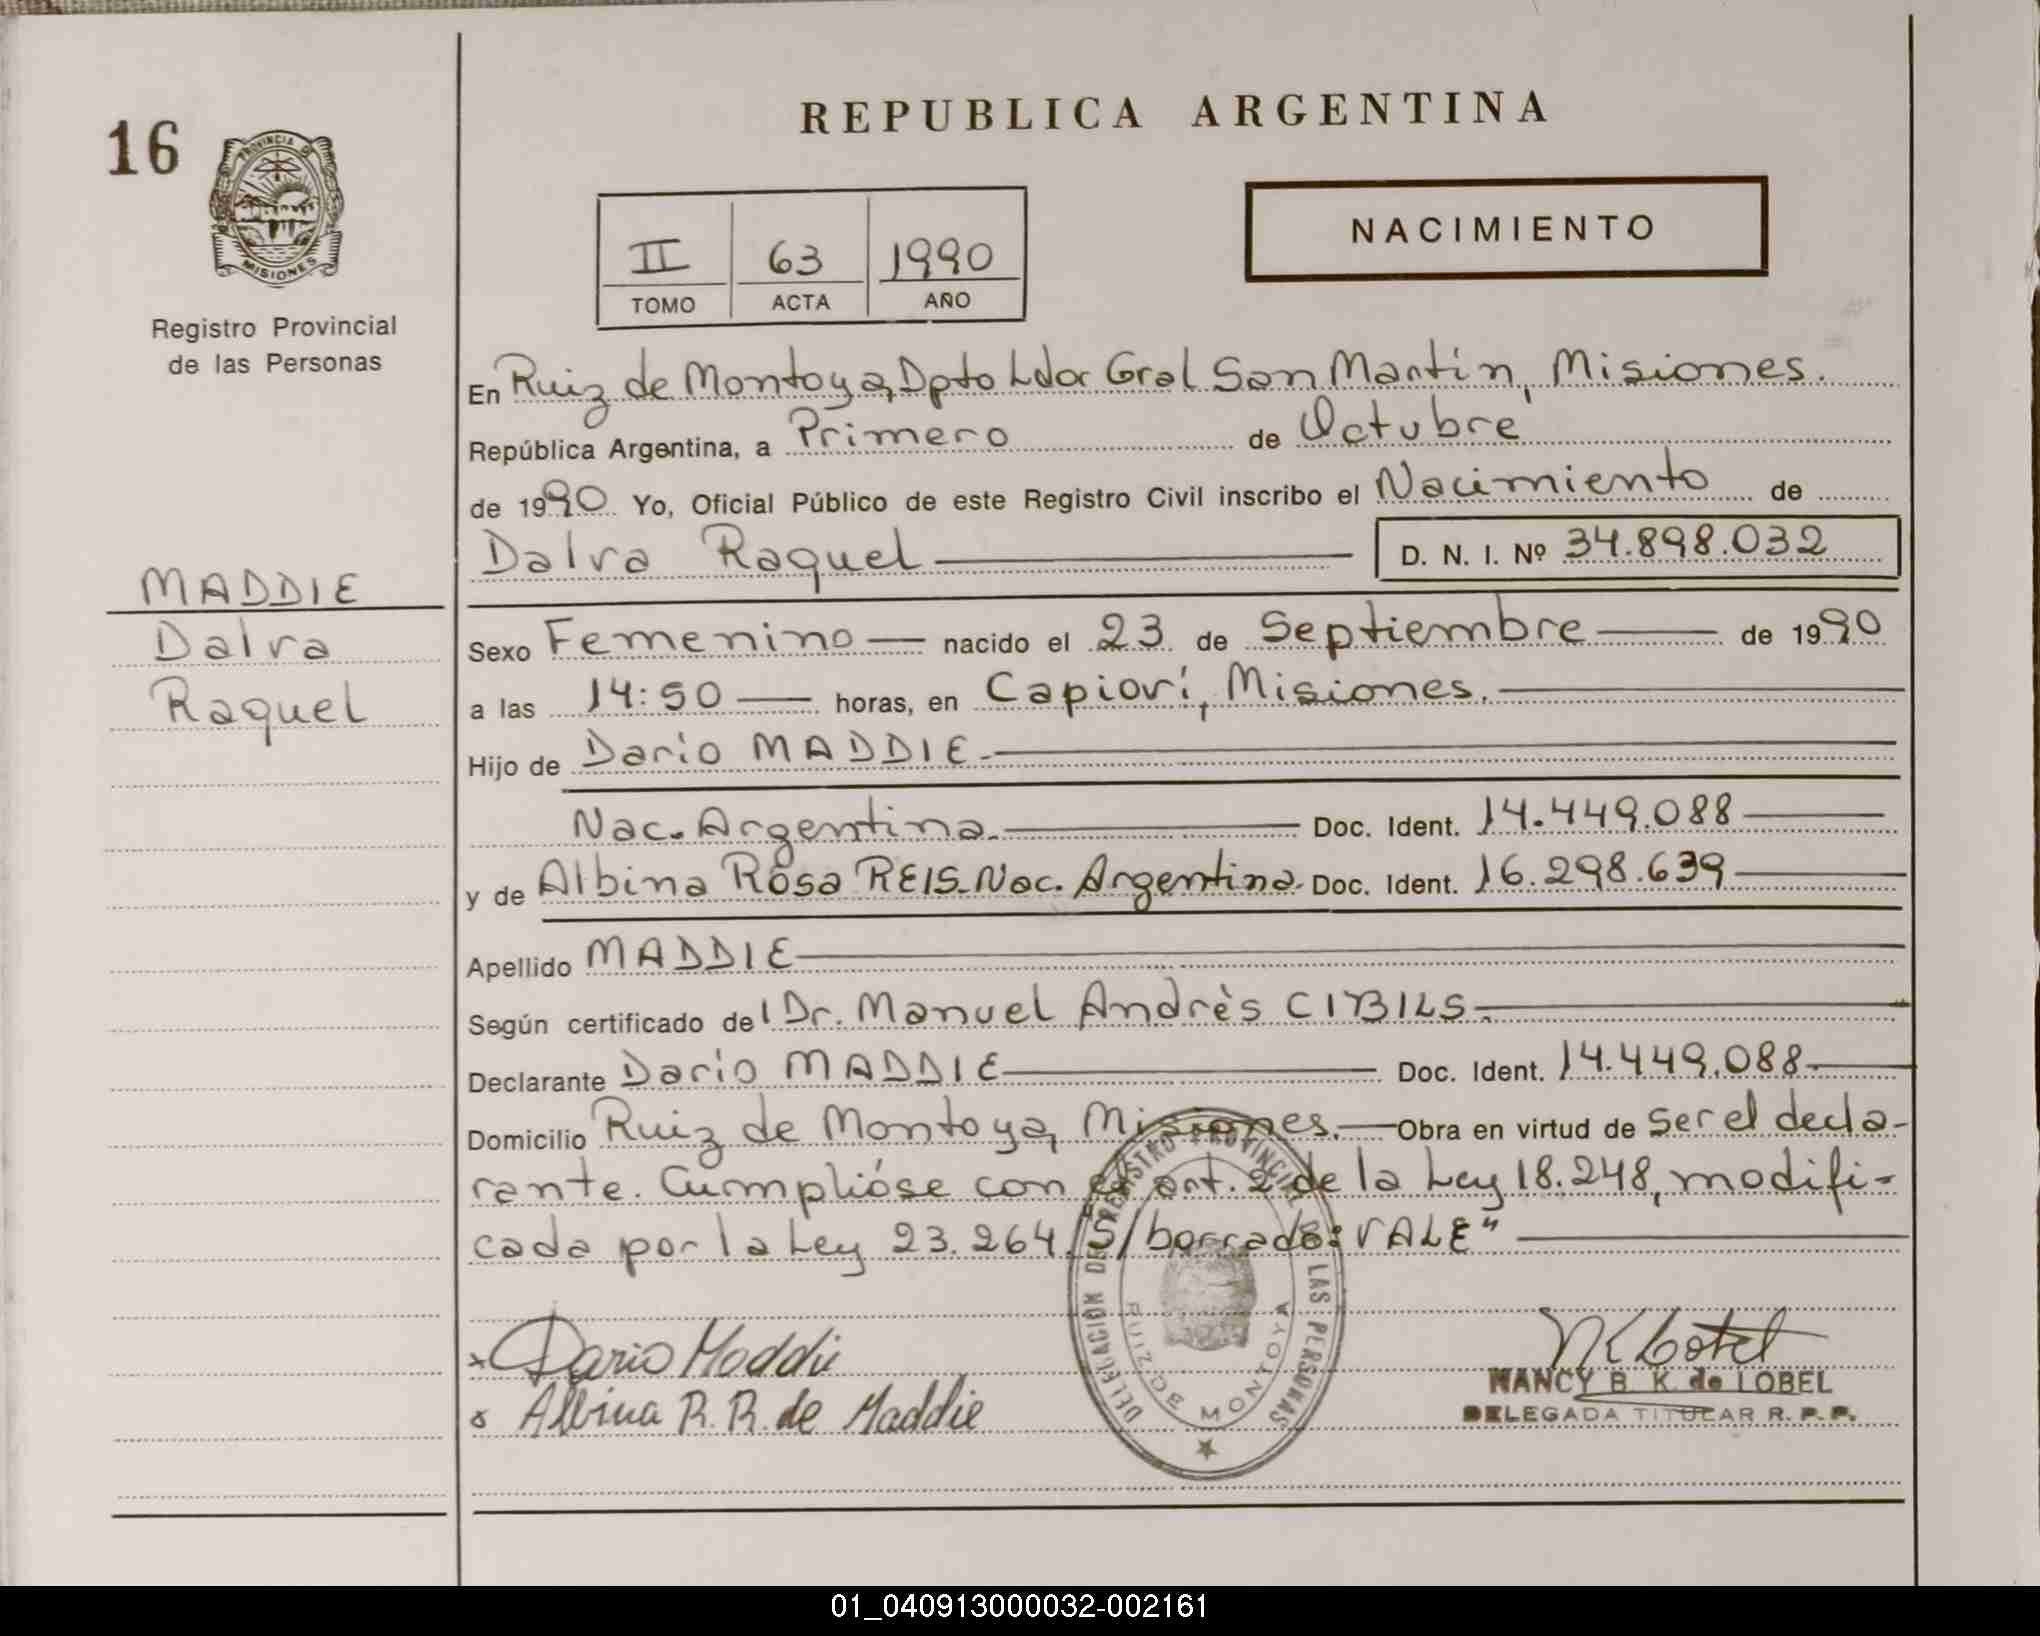 REPUBLICA ARGENTINA
16
PROVINCIA DE
MISIONES
Registro Provincial
de las Personas
NACIMIENTO
II 63 1990
TOMO ACTA AÑO
En Ruiz de Montoya, Dpto Ldor Gral San Martín, Misiones.
República Argentina, a Primero de Octubre
de 1990 Yo, Oficial Público de este Registro Civil inscribo el Nacimiento de
Dalva Raquel D. N. I. Nº 34.898.032
MADDIE
Dalva
Raquel
Sexo Femenino nacido el 23 de Septiembre de 1990
a las 14:50 horas, en Capioví, Misiones.
Hijo de Dario MADDIE.
Nac. Argentina. Doc. Ident. 14.449.088
y de Albina Rosa REIS. Nac. Argentina. Doc. Ident. 16.298.639
Apellido MADDIE
Según certificado del Dr. Manuel Andrès CIBILS.
Declarante Dario MADDIE Doc. Ident. 14.449.088
Domicilio Ruiz de Montoya, Misiones. Obra en virtud de ser el decla-
rante. Cumplióse con el art. 2 de la Ley 18.248, modifi-
cada por la Ley 23.264. S/borrado: VALE"
DELEGACION DEL REGISTRO PROVINCIAL DE LAS PERSONAS
RUIZ DE MONTOYA
x Dario Maddie
x Albina R. R. de Maddie
NK Lobel
NANCY B. K. de LOBEL
DELEGADA TITULAR R. P. P.
01_040913000032-002161